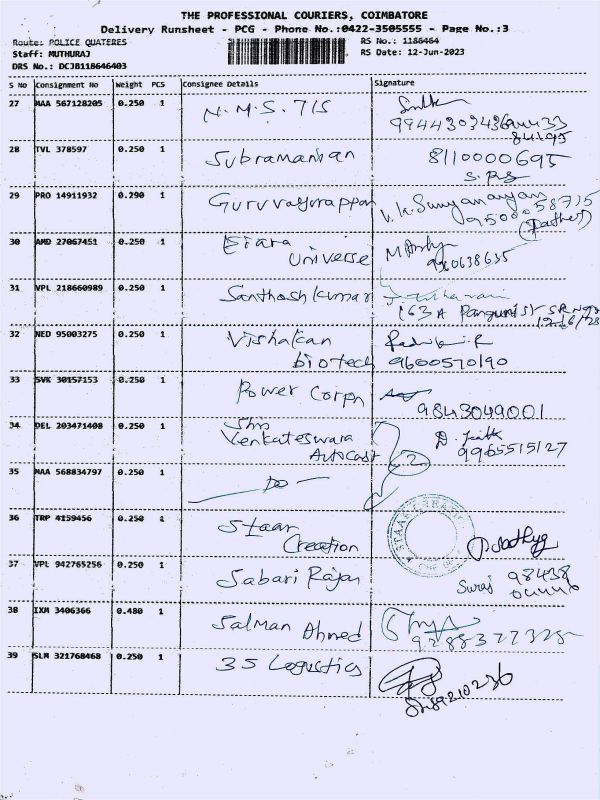 THE PROFESSIONAL COURIERS, COIMBATORE
Delivery Runsheet - PCG - Phone No.:0422-3505555 - Page No.:3
Route: POLICE QUATERES
Staff: MUTHURAJ
DRS No.: DCJB118646403
RS No.: 1186464
RS Date: 12-Jun-2023
S No Consignment No Weight PCS Consignee Details Signature
27 MAA 567128205 0.250 1 N.M.S. 715
84195
28 TVL 378597 0.250 1 Subramanian 8110000695
29 PRO 14911932 0.290 1 Guruvayurappan
(Father)
30 AMD 27067451 0.250 1
Universe
31 VPL 218660989 0.250 1 Santhosh kumar
163 A
32 NED 95003275 0.250 1 Vishakan
biotech 9600570190
33 SVK 30157153 0.250 1 Power Corpn
9843049001
34 DEL 203471408 0.250 1
Venkateswara
Autocast 9965515127
2
35 MAA 568834797 0.250 1 - Do -
36 TRP 4159456 0.250 1 Staar
Creation
37 VPL 942765256 0.250 1 Sabari Rajan Suraj 98438
38 IXM 3406366 0.480 1 Salman Ahmed
39 SLM 321768468 0.250 1 3S Logistics